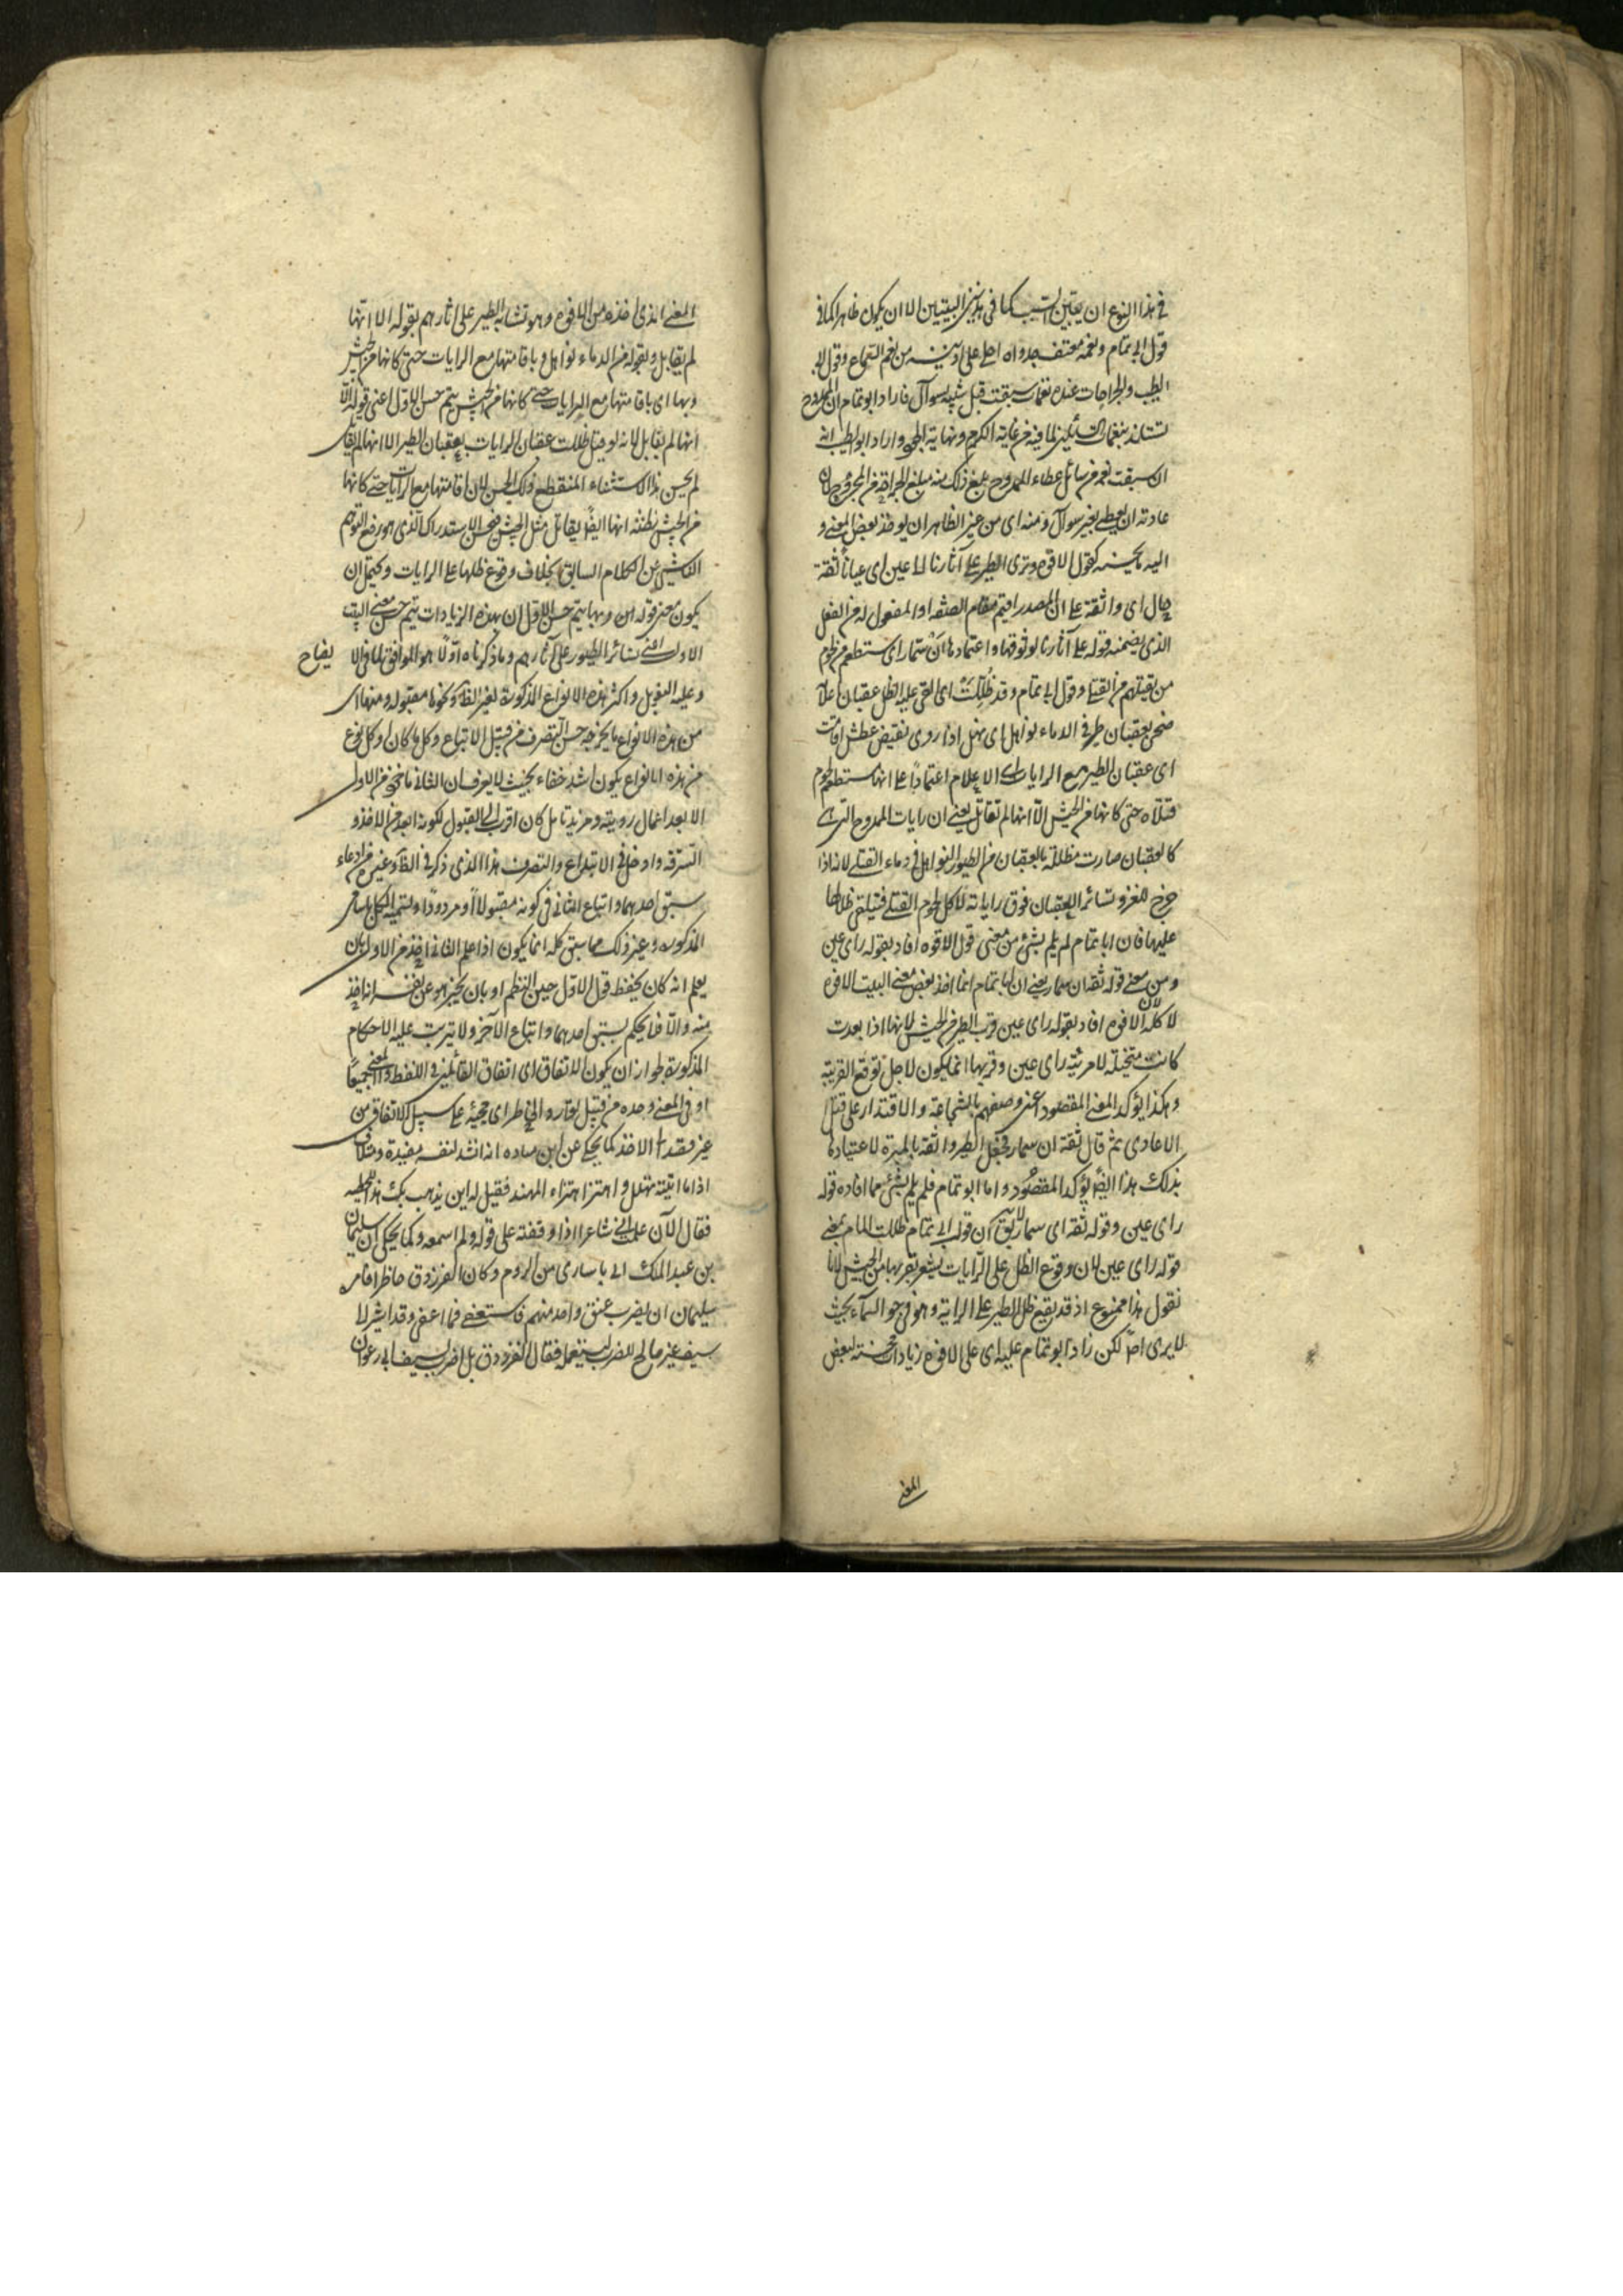 في هذا النوع ان يتبين السبب كما في هذين البيتين الا ان يكون ظاهرا كما في
قول ابي تمام ونغمة معتف جدواه احلى على اذنيه من نغم السماع وقول ابي
الطيب والجراحات عنده نغمات سبقت قبل سيبه بسوال فاراد ابو تمام ان الممدوح
تستلذ بنغمات السائلين لما فيه من غاية الكرم ونهاية الجود واراد ابو الطيب انه
ان سبقت نغمة من سائل عطاء الممدوح بلغ ذلك منه مبلغ الجراحة من المجروح لان
عادته ان يعطي بغير سوال ومنه اي من غير الظاهر ان يوخذ بعض المعنى و
اليه ما يحسنه كقول الافوه وترى الطير على آثارنا راي عين اي عيانا ثقة
حال اي واثقة على ان المصدر اقيم مقام الصفة او المفعول له من الفعل
الذي يتضمنه قوله على آثارنا لوثوقها واعتمادها ان ستمار اي ستطعم من لحوم
من نقتلهم من القتلى وقول ابي تمام وقد ظللت اي القي عليه الظل عقبان اعلامه
ضحى بعقبان طير في الدماء نواهل اي نهل اذا روي نقيض عطش اقامت
اي عقبان الطير مع الرايات اي الاعلام اعتمادا على انها ستطعم لحوم
قتلاه حتى كانها من الجيش الا انها لم تقاتل يعني ان رايات الممدوح التي هي
كالعقبان صارت مظللة بالعقبان من الطيور النواهل في دماء القتلى لانه اذا
خرج للغزو تساير العقبان فوق راياته لاكل لحوم القتلى فتلقي ظلالها
عليها فان ابا تمام لم يلم بشئ من معنى قول الافوه افاد بقوله راي عين
ومن معنى قوله ثقة ان ستمار يعني ان ابا تمام انما اخذ بعض معنى البيت الافوه
لا كله لان الافوه افاد بقوله راي عين قرب الطير من الجيش لانها اذا بعدت
كانت متخيلة لا مرئية راي عين وقربها انما يكون لاجل توقع الفريسة
وهكذا يؤكد المعنى المقصود اعني وصفهم بالشجاعة والاقتدار على قتل
الاعادي ثم قال ثقة ان ستمار فجعل الطير واثقة بالميرة لاعتيادها
بذلك هذا ايضا يؤكد المقصود واما ابو تمام فلم يلم بشئ مما افاده قوله
راي عين وقوله ثقة اي ستمار لا يق ان قول ابي تمام ظللت المام بمعنى
قوله راي عين لان وقوع الظل على الرايات يشعر بقربها من الجيش لانا
نقول هذا ممنوع اذ قد يقع ظل الطير على الراية وهو في جو السماء بحيث
لا يرى اصلا لكن زاد ابو تمام عليه اي على الافوه زيادات محسنة لبعض
المعنى
المعنى الذي اخذه من الافوه وهو تساير الطير على آثارهم بقوله الا انها
لم يقابل وبقوله من الدماء نواهل وباقامتها مع الرايات حتى كانها من الجيش
وبها اي باقامتها مع الرايات حتى كانها من الجيش يتم حسن الاول اعني قوله الا
انها لم يقابل لانه لو قيل ظللت عقبان الرايات بعقبان الطير الا انها لم يقاتل
لم يحسن هذا الاستثناء المنقطع ذلك الحسن لان اقامتها مع الرايات حتى كانها
من الجيش مظنة انها ايضا يقاتل مثل الجيش فيحسن الاستدراك الذي هو رفع التوهم
الناشي من الكلام السابق بخلاف وقوع ظلها على الرايات ويحتمل ان
يكون معنى قوله اه وبها يتم حسن الاول ان بهذه الزيادات يتم حسن معنى البيت
الاول اعني تساير الطيور على آثارهم وما ذكرناه اولا هو الموافق لما في الا
يضاح
وعليه التعويل واكثر هذه الانواع المذكورة لغير الظاهر ونحوها مقبولة ومنها اي
من هذه الانواع ما يخرجه حسن التصرف من قبيل الاتباع وكل ما كان او كل نوع
من هذه الانواع يكون اشد خفاء بحيث لا يعرف ان الثاني ماخوذ من الاول
الا بعد اعمال روية ومزيد تامل كان اقرب الى القبول لكونه ابعد من الاخذ و
السرقة وادخل في الابتداع والتصرف هذا الذي ذكر في الظاهر وغيره من ادعاء
سبق احدهما واتباع الثاني في كونه مقبولا او مردودا وتسمية الكل بالاسامي
المذكورة وغير ذلك مما سبق كله انما يكون اذا علم الثاني اخذ من الاول بان
يعلم انه كان يحفظ قول الاول حين النظم او بان يخبر هو عن نفسه انه اخذ
منه والا فما يحكم بسبق احدهما واتباع الآخر ولا يترتب عليه الاحكام
المذكورة لجواز ان يكون الاتفاق اي اتفاق القائلين في اللفظ والمعنى جميعا
او في المعنى وحده من قبيل توارد الخاطر اي مجيئه على سبيل الاتفاق من
غير قصد الى الاخذ كما يحكى عن ابن ميادة انه انشد لنفسه مفيد ومتلاف
اذا ما اتيته تهلل واهتز اهتزاز المهند فقيل له اين يذهب بك هذا للحطيئة
فقال الآن علمت اني شاعر اذا وقفته على قوله ولم اسمعه وكما يحكى ان سليمان
بن عبد الملك اتي باسارى من الروم وكان الفرزدق حاضرا فامر
سليمان ان يضرب عنق واحد منهم فاستعفى فما اعفي وقد اشير الى
سيف غير صالح للضرب ليستعمله فقال الفرزدق بل اضرب بسيف ابي رغوان